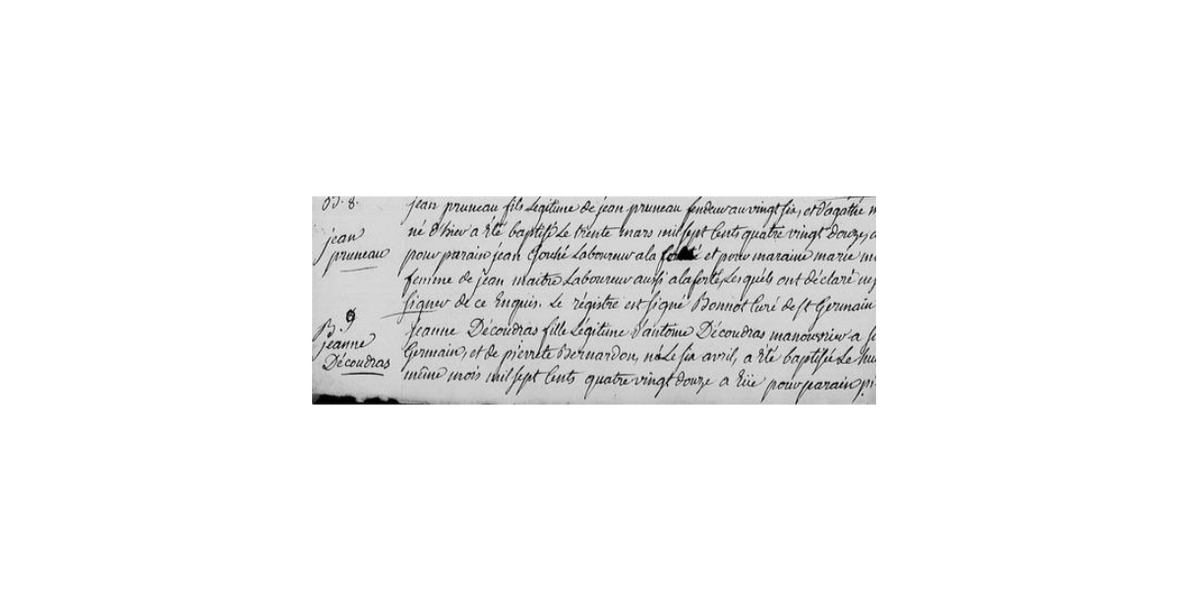 B. 8.
jean
pruneau
jean pruneau fils Legitime de jean pruneau fendeur au vingt six, et d'agathe
né d'hier a été baptisé Le trente mars mil sept Cents quatre vingt douze,
pour parain jean Gouhé Laboureur a la et pour maraine marie
femme de jean maitre Laboureur aussi a la ferté, Lesquels ont déclaré
signer de ce Enquis. Le régistre est signé Bonnot Curé de st Germain
B. 9
jeanne
Découdras
jeanne Découdras fille Légitime d'antoine Découdras manouvrier a
Germain, et de pierrete Bernardon, née Le six avril, a été baptisée Le
même mois mil sept Cents quatre vingt douze a Eüe pour parain